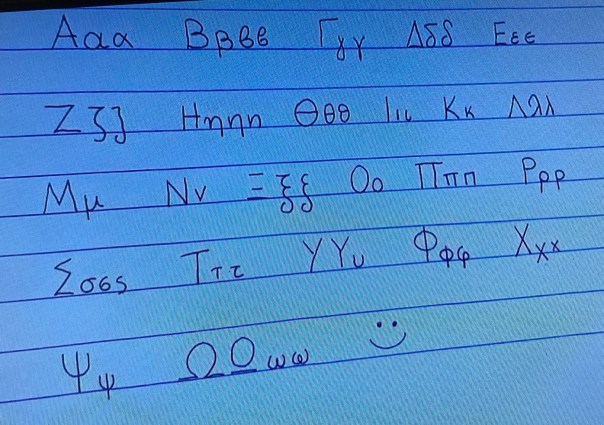 Ααα Βββθ Γγγ Δδδ Εεε
Ζζζ Ηηηη Θθθ Ιιι Κκ Λλλ
Μμ Νν Ξξξ Οο Πππ Ρρρ
Σσσς Τττ ΥΥυ Φφφ Χχχ
Ψψ ΩΩωω